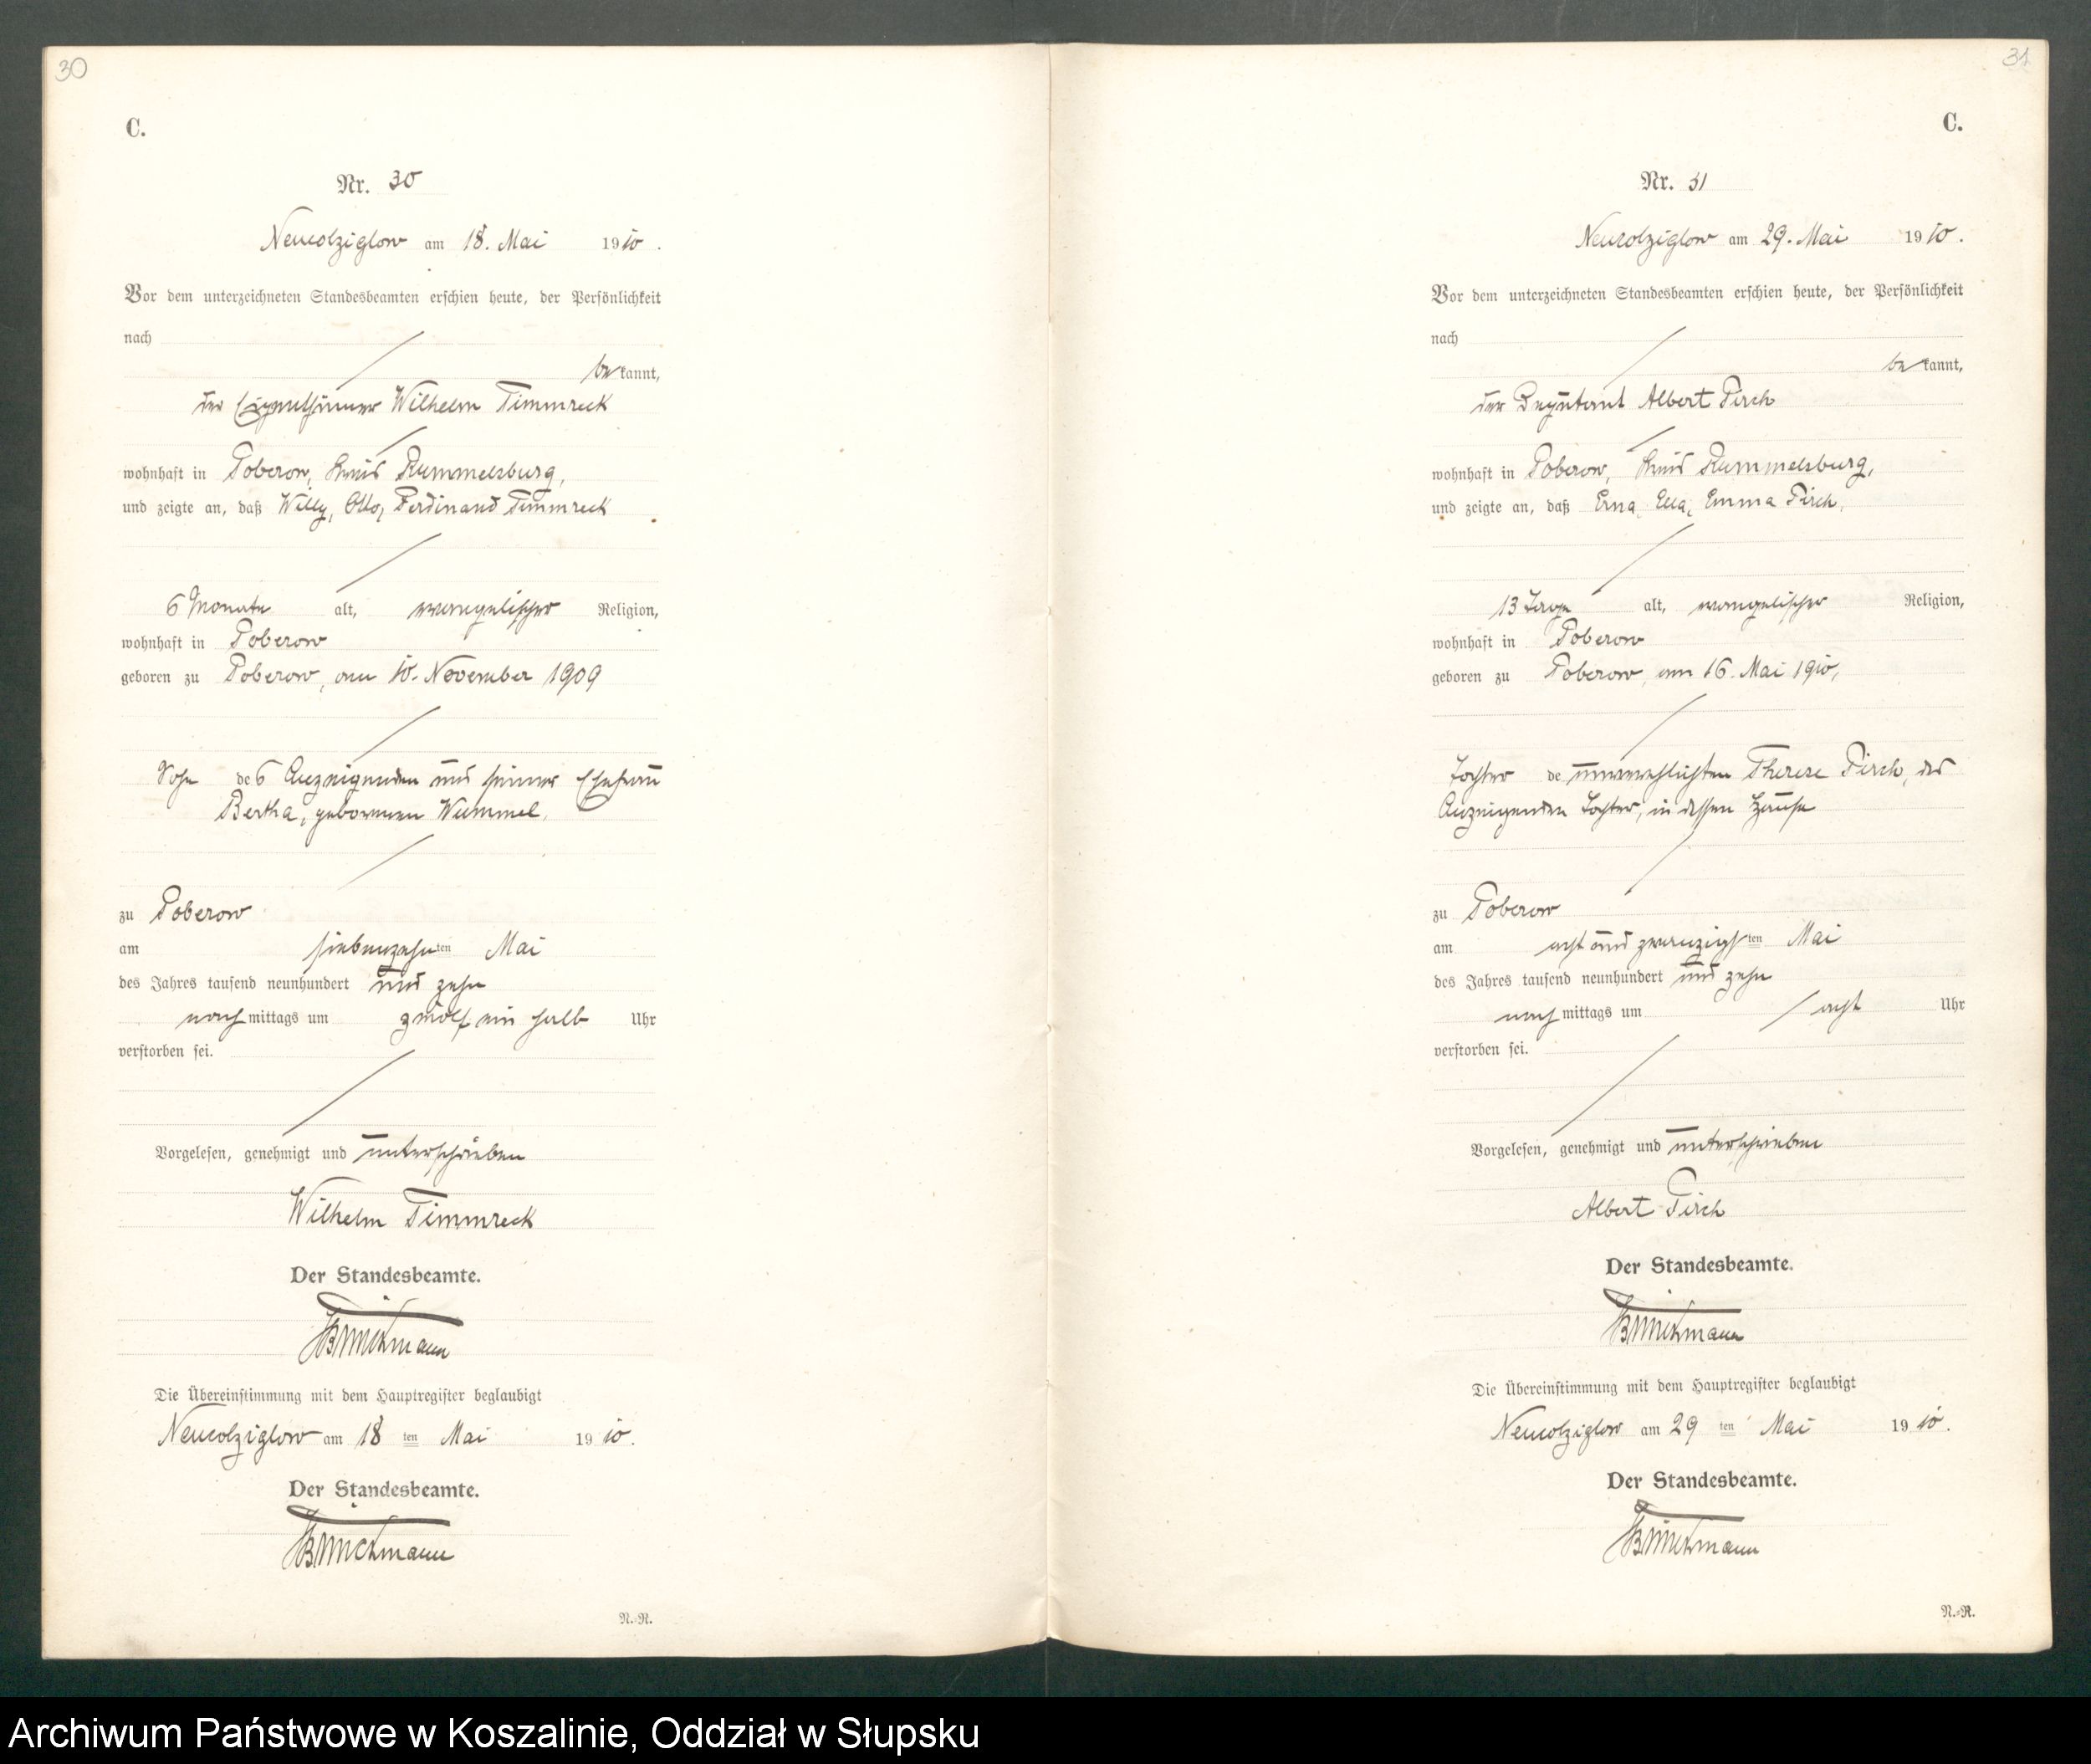 30
C.
Nr. 30
Neukolziglow am 18. Mai 1910.
Vor dem unterzeichneten Standesbeamten erschien heute, der Persönlichkeit
nach
bekannt,
der Eigenthümer Wilhelm Timmreck
wohnhaft in Poberow, Kreis Rummelsburg,
und zeigte an, daß Willy, Otto, Ferdinand Timmreck
6 Monate alt, evangelischer Religion,
wohnhaft in Poberow
geboren zu Poberow, am 10. November 1909
Sohn des Anzeigenden und seiner Ehefrau
Bertha, geborenen Wummel,
zu Poberow
am siebenzehnten Mai
des Jahres tausend neunhundert und zehn
nachmittags um zwölf ein halb Uhr
verstorben sei.
Vorgelesen, genehmigt und unterschrieben
Wilhelm Timmreck
Der Standesbeamte.
Die Übereinstimmung mit dem Hauptregister beglaubigt
Neukolziglow am 18 ten Mai 1910.
Der Standesbeamte.
N.=R.
31
C.
Nr. 31
Neukolziglow am 29. Mai 1910.
Vor dem unterzeichneten Standesbeamten erschien heute, der Persönlichkeit
nach
bekannt,
der Albert Pirch
wohnhaft in Poberow, Kreis Rummelsburg,
und zeigte an, daß Erna, Ella, Emma Pirch,
13 Tage alt, evangelischer Religion,
wohnhaft in Poberow
geboren zu Poberow, am 16. Mai 1910,
Tochter de unverehelichten Therese Pirch, des
Anzeigenden Tochter, in dessen Hause
zu Poberow
am acht und zwanzigsten Mai
des Jahres tausend neunhundert und zehn
nachmittags um acht Uhr
verstorben sei.
Vorgelesen, genehmigt und unterschrieben
Albert Pirch
Der Standesbeamte.
Die Übereinstimmung mit dem Hauptregister beglaubigt
Neukolziglow am 29 ten Mai 1910.
Der Standesbeamte.
N.=R.
Archiwum Państwowe w Koszalinie, Oddział w Słupsku